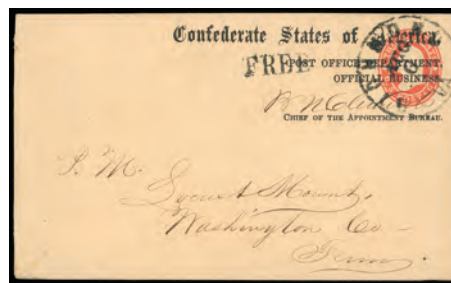 Confederate States of America,
POST OFFICE DEPARTMENT,
FREE
OFFICIAL BUSINESS.
CHIEF OF THE APPOINTMENT BUREAU.
P. M.
Locust Mount,
Washington Co
Tenn.